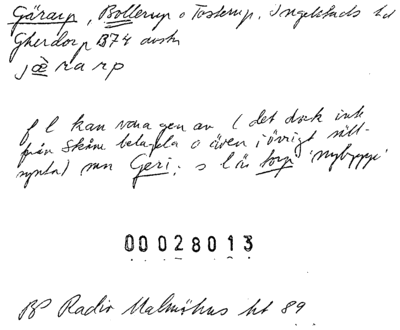 Gärarp, Bollerup o Tosterup, Ingelstads hd
Gherdorp B74 avskr
jæ̀rarp
fl kan vara gen av (det dock inte
från Skåne belagda o även i övrigt säll-
synta) mn Geri; sl är torp 'nybygge'
00028013
BP Radio Malmöhus ht 89